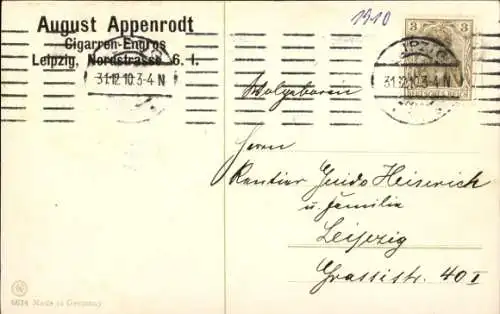 August Appenrodt
Cigarren-Engros
Leipzig, Nordstrasse 6. I.
1910
3
LEIPZIG
31.12.10.3-4 N
31.12.10.3-4 N
Wolgeboren
Herrn
Rentier Guido Heiserich
u. Familie
Leipzig
Grassistr. 40 I
Made in Germany